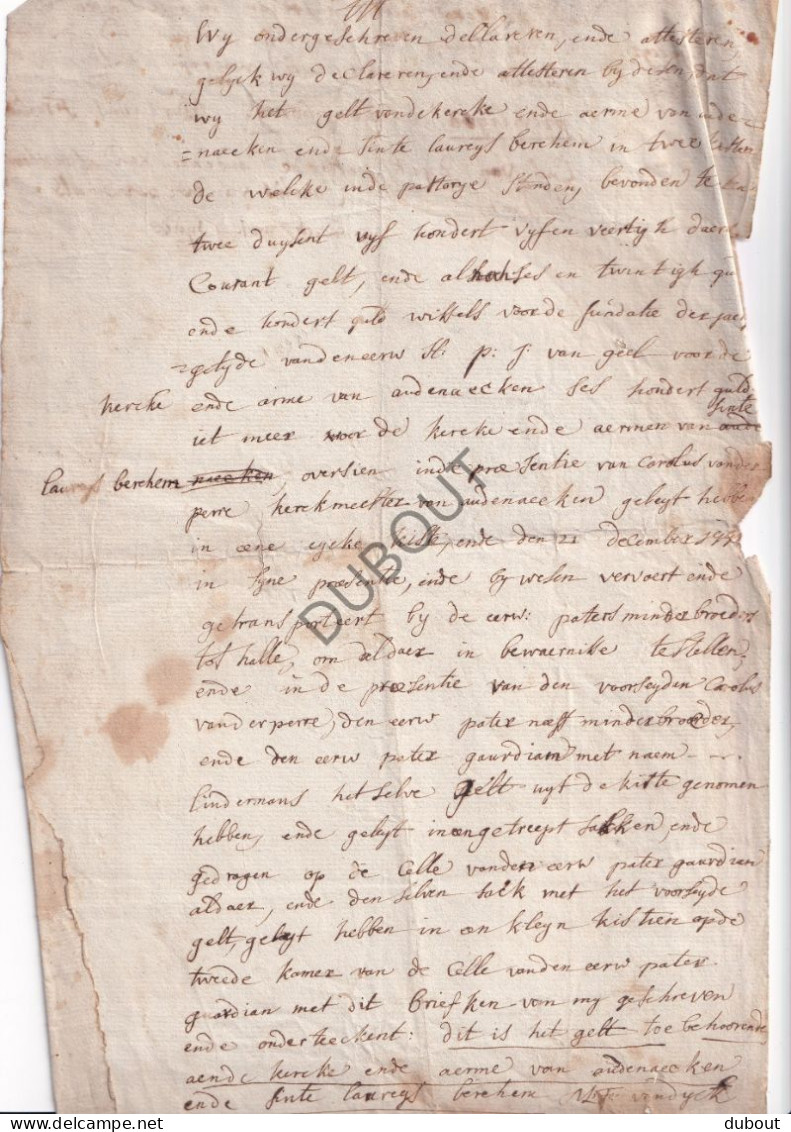 Wy ondergeschreven declareren, ende attesteren
gelyck wy declareren, ende attesteren by desen, dat
wy het gelt vande kercke ende aerme van aude=
=naecken ende sinte laureys berchem in twee kisten
de welcke inde pastorye stonden, bevonden te
twee duysent vyf hondert vyfen veertigh
Courant gelt, ende als ses en twintigh
ende hondert guld wissels voor de fundatie der
=getyde vanden eerw H: p: J: van geel voor de
kercke ende arme van audenaecken ses hondert guld
iet meer voor de kercke ende aermen van sinte
laureys berchem, oversien inde præsentie van Carolus vander
perre kerckmeester van audenaecken geleyt hebben
in eene eycke kiste, ende den 21 december
in syne præsentie, ende by wesen vervoert ende
getransporteert by de eerw: paters minderbroeders
tot halle, om aldaer in bewaernisse te stellen,
ende in de præsentie van den voorseyden Carolus
vanderperre, den eerw pater minderbroeder,
ende den eerw pater gaurdiaen met naem
lindermans het selve gelt uyt de kiste genomen
hebben, ende geleyt in een getreept sacken, ende
gedragen op de Celle vanden eerw pater gaurdiaen
aldaer, ende den selven sack met het voorseyde
gelt, geleyt hebben in een kleyn kistien op de
tweede kamer van de Celle vanden eerw pater
guardian met dit briefken van my geschreven
ende onderteeckent: dit is het gelt toe behoorende
aende kercke ende aerme van audenaecken
ende sinte laureys berchem vandyck
DUBOUT
dubout